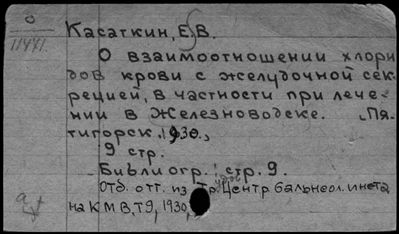 О
11441.
Касаткин, Е. В.
О взаимоотношении хлори
дов крови с желудочной сек-
рецией, в частности при лече-
нии в Железноводске. Пя-
тигорск, 1930.,
9 стр.
Библиогр.: стр. 9.
Отд. отт. из Трудов Центр. бальнеол. инста
на КМВ, Т 9, 1930,